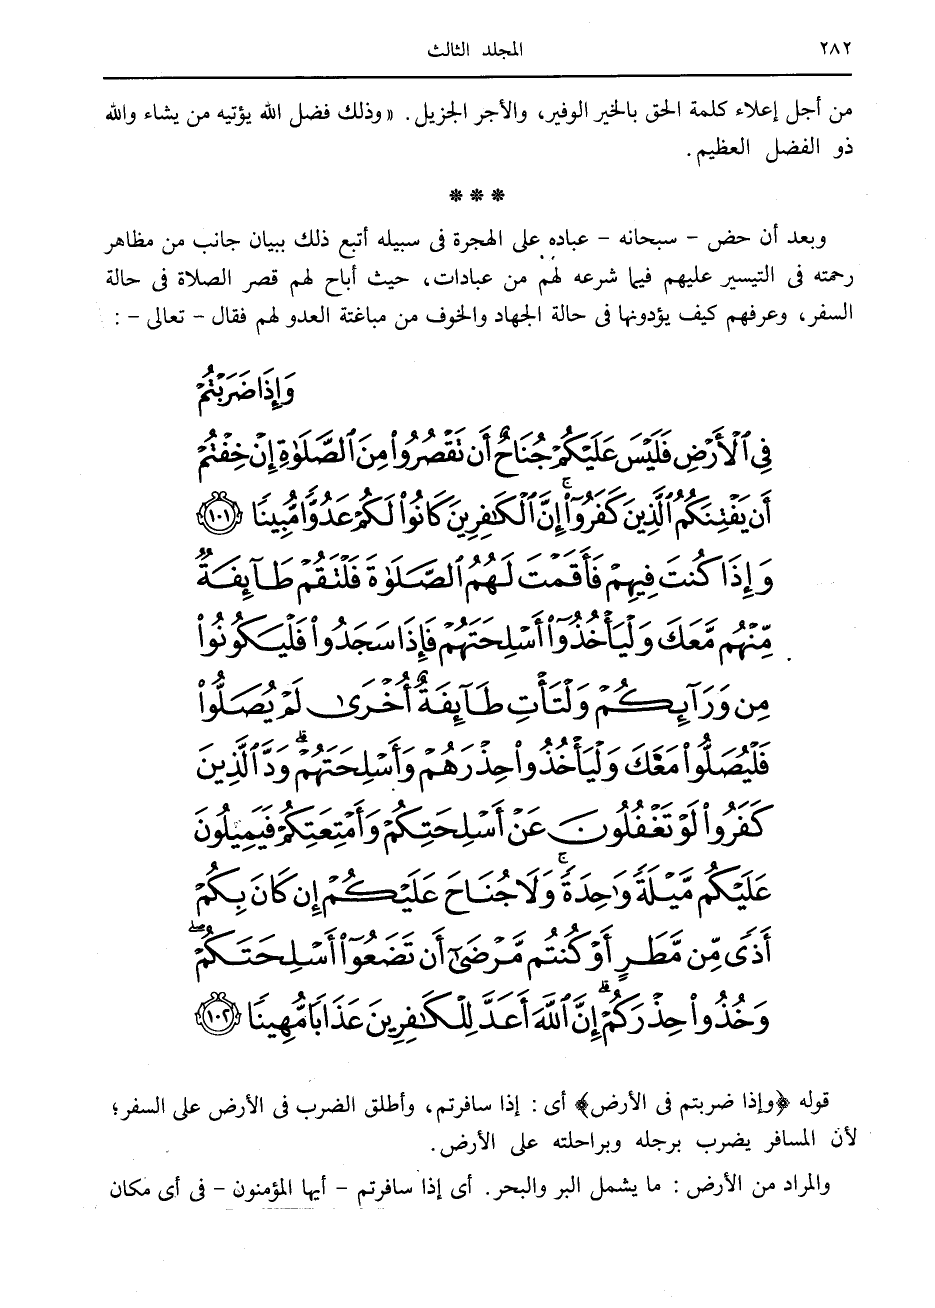 ٢٨٢ المجلد الثالث
من أجل إعلاء كلمة الحق بالخير الوفير، والأجر الجزيل. «وذلك فضل الله يؤتيه من يشاء والله
ذو الفضل العظيم.
***
وبعد أن حض - سبحانه - عباده على الهجرة فى سبيله أتبع ذلك ببيان جانب من مظاهر
رحمته فى التيسير عليهم فيما شرعه لهم من عبادات، حيث أباح لهم قصر الصلاة فى حالة
السفر، وعرفهم كيف يؤدونها فى حالة الجهاد والخوف من مباغتة العدو لهم فقال - تعالى - :
وَإِذَا ضَرَبْتُمْ
فِي ٱلْأَرْضِ فَلَيْسَ عَلَيْكُمْ جُنَاحٌ أَن تَقْصُرُوا۟ مِنَ ٱلصَّلَوٰةِ إِنْ خِفْتُمْ
أَن يَفْتِنَكُمُ ٱلَّذِينَ كَفَرُوٓا۟ ۚ إِنَّ ٱلْكَـٰفِرِينَ كَانُوا۟ لَكُمْ عَدُوًّا مُّبِينًا ١٠١
وَإِذَا كُنتَ فِيهِمْ فَأَقَمْتَ لَهُمُ ٱلصَّلَوٰةَ فَلْتَقُمْ طَآئِفَةٌ
مِّنْهُم مَّعَكَ وَلْيَأْخُذُوٓا۟ أَسْلِحَتَهُمْ فَإِذَا سَجَدُوا۟ فَلْيَكُونُوا۟
مِن وَرَآئِكُمْ وَلْتَأْتِ طَآئِفَةٌ أُخْرَىٰ لَمْ يُصَلُّوا۟
فَلْيُصَلُّوا۟ مَعَكَ وَلْيَأْخُذُوا۟ حِذْرَهُمْ وَأَسْلِحَتَهُمْ ۗ وَدَّ ٱلَّذِينَ
كَفَرُوا۟ لَوْ تَغْفُلُونَ عَنْ أَسْلِحَتِكُمْ وَأَمْتِعَتِكُمْ فَيَمِيلُونَ
عَلَيْكُم مَّيْلَةً وَٰحِدَةً ۚ وَلَا جُنَاحَ عَلَيْكُمْ إِن كَانَ بِكُمْ
أَذًى مِّن مَّطَرٍ أَوْ كُنتُم مَّرْضَىٰٓ أَن تَضَعُوٓا۟ أَسْلِحَتَكُمْ ۖ
وَخُذُوا۟ حِذْرَكُمْ ۗ إِنَّ ٱللَّهَ أَعَدَّ لِلْكَـٰفِرِينَ عَذَابًا مُّهِينًا ١٠٢
قوله ﴿وإذا ضربتم فى الأرض﴾ أى : إذا سافرتم، وأطلق الضرب فى الأرض على السفر؛
لأن المسافر يضرب برجله وبراحلته على الأرض.
والمراد من الأرض : ما يشمل البر والبحر. أى إذا سافرتم - أيها المؤمنون - فى أى مكان